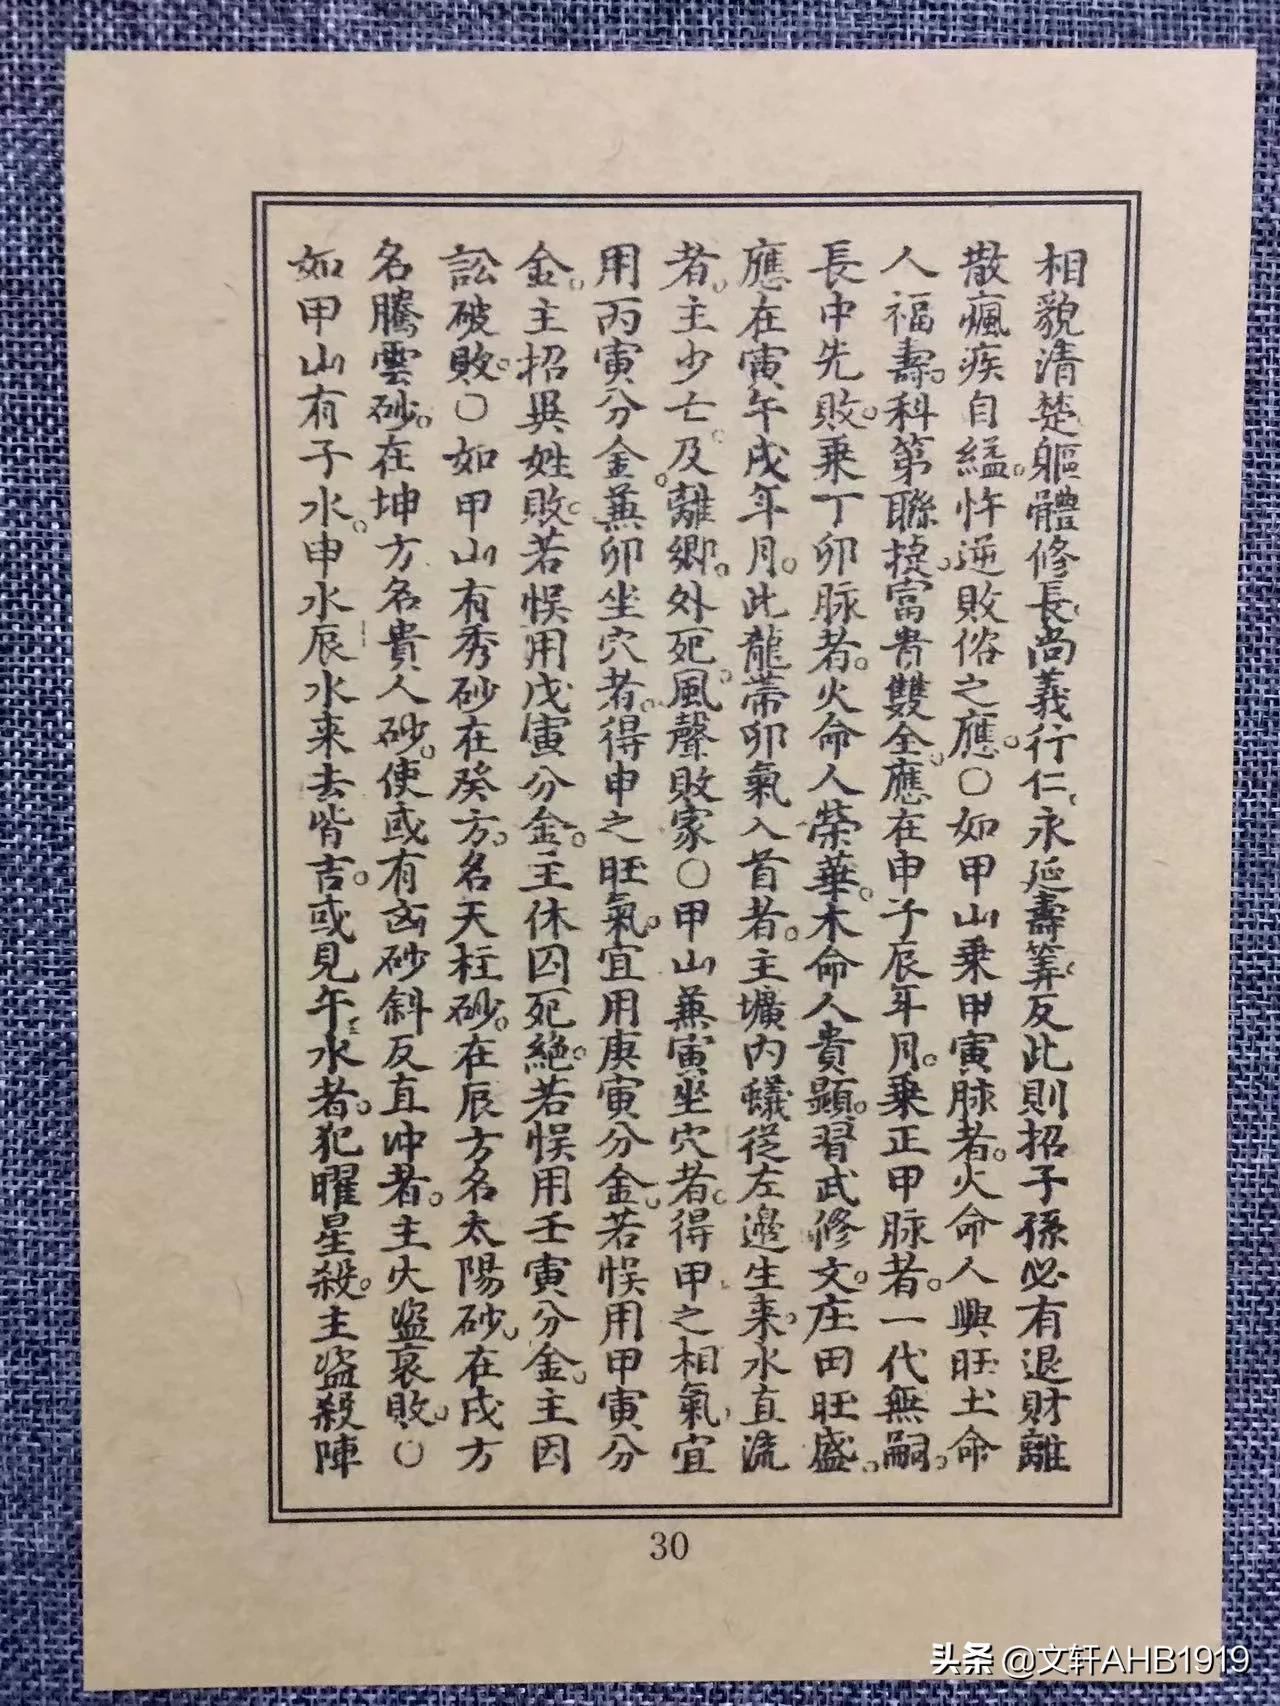 相貌清楚軀體修長尚義行仁永延壽筭反此則招子孫必有退財離
散瘋疾自縊忤逆敗俗之應。〇如甲山乗甲寅脉者。火命人興旺土命
人福壽。科第聯捷。富貴雙全。應在申子辰年月。乗正甲脈者。一代無嗣。
長中先敗。乗丁卯脉者。火命人榮華。木命人貴顯。習武修文。庄田旺盛。
應在寅午戌年月。此龍帶卯氣入首者。主壙內蟻從左邊生来。水直流
者。主少亡。及離鄉。外死。風聲敗家〇甲山蒹寅坐穴者。得甲之相氣。宜
用丙寅分金。蒹卯坐穴者。得申之旺氣。宜用庚寅分金。若悮用甲寅分
金。主招異姓敗。若悮用戊寅分金。主休囚死絶。若悮用壬寅分金。主因
訟破敗。〇如甲山有秀砂在癸方。名天柱砂。在辰方名太陽砂。在戌方
名騰雲砂。在坤方名貴人砂。使或有凶砂斜反直冲者。主火盜衰敗。〇
如甲山有子水。申水辰水来去皆吉。或見午水者。犯曜星殺。主盜殺陣
30
头条 @文轩AHB1919